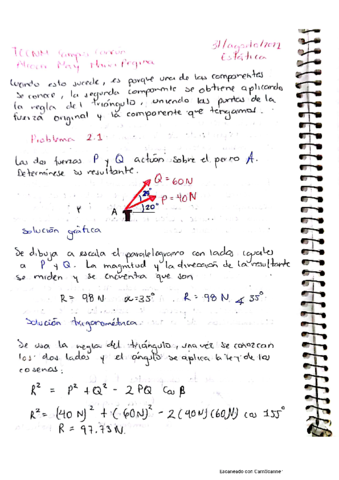 TECNM Campus Cancún
31/agosto/2022
Estática
Cuando esto sucede, es porque una de las componentes
se conoce, la segunda componente se obtiene aplicando
la regla del triángulo, uniendo las puntas de la
fuerza original y la componente que tengamos.
Problema 2.1
Las dos fuerzas P y Q actúan sobre el perno A.
Determínese su resultante.
Q = 60N
25°
P = 40N
A
20°
Solución gráfica
Se dibuja a escala el paralelogramo con lados iguales
a P y Q. La magnitud y la dirección de la resultante
se miden y se encuentra que son
R = 98 N α=35° R = 98 N ∡ 35°
Solución trigonométrica
Se usa la regla del triángulo, una vez se conozcan
los dos lados y el ángulo se aplica la ley de los
cosenos.
R² = P² + Q² - 2 PQ Cos B
R² = (40 N)² + (60N)² - 2(40N)(60N) cos 155°
R = 97.73 N.
Escaneado con CamScanner